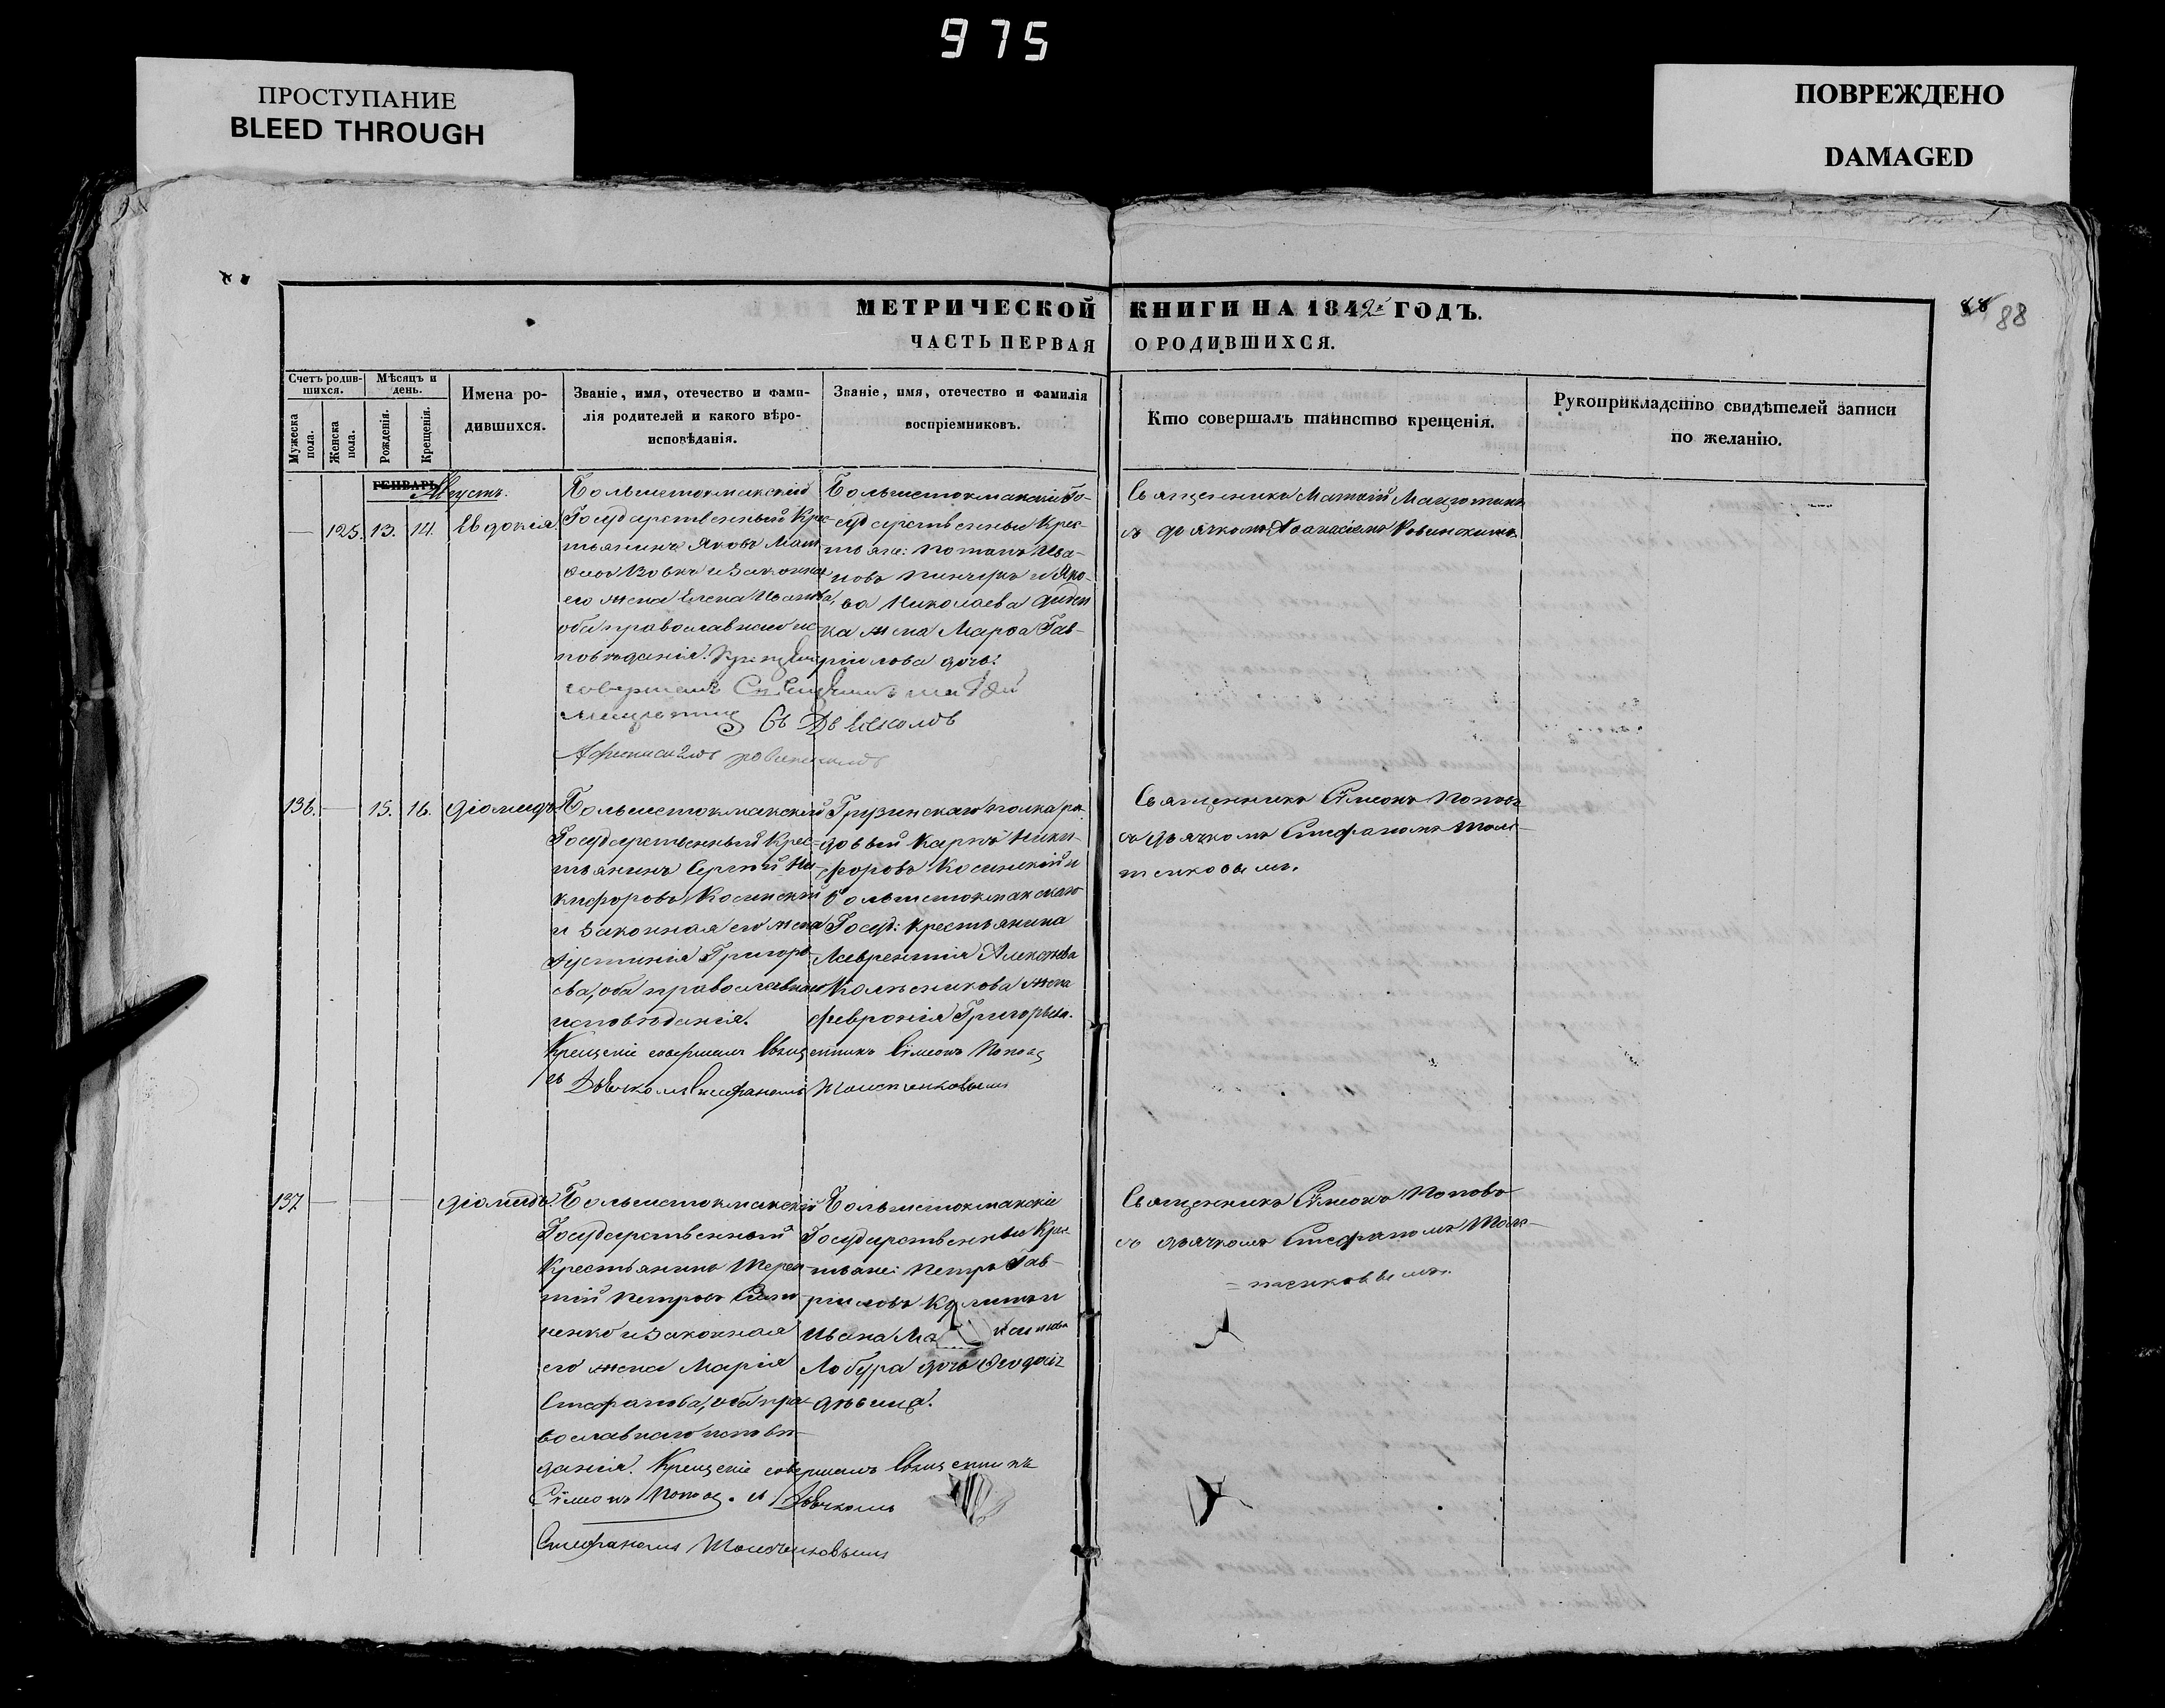 975
ПРОСТУПАНИЕ
BLEED THROUGH
ПОВРЕЖДЕНО
DAMAGED
МЕТРИЧЕСКОЙ КНИГИ НА 1842й ГОДЪ.
88 88
ЧАСТЬ ПЕРВАЯ О РОДИВШИХСЯ.
Счетъ родившихся.
Мужеска пола.
Женска пола.
Мѣсяцъ и день.
Рожденія.
Крещенія.
Имена родившихся.
Званіе, имя, отечество и фами-
лія родителей и какого вѣро-
исповѣданія.
Званіе, имя, отечество и фамилія
воспріемниковъ.
Кто совершалъ таинство крещенія.
Рукоприкладство свидѣтелей записи
по желанію.
ГЕНВАРЬ Августъ.
125. 13. 14. Евдокія
Большетокмакскій
Государственный Крес-
тьянинъ Яковъ
и законная
его жена Елена Иванова,
оба православнаго ис-
повѣданія. Крещеніе
совершалъ Священникъ
Съ Дьячкомъ
Большетокмакскіе Го-
сударственные Крес-
тьяне: Потапъ Ива-
новъ и Яко-
ва Николаева
жена Марѳа Гав-
ріилова дочь.
Священникъ Матѳій
съ дьячкомъ Аѳанасіемъ Ровинскимъ
136. 15. 16. Діомидъ
Большетокмакскій
Государственный Крес-
тьянинъ Сергѣй Ни-
кифоровъ Косинскій
и законная его жена
Іустинія Григорь-
ева, оба православнаго
исповѣданія.
Крещеніе совершалъ Священникъ Сѵмеонъ Поповъ
съ Дьячкомъ Стефаномъ
Грузинскаго полка ря-
довый Карпъ Ники-
форовъ Косинскій и
Большетокмакскаго
Госуд: крестьянина
Лаврентія Алексѣева
Колѣсникова жена
Февронія Григорьева.
Священникъ Сѵмеонъ Поповъ
съ дьячкомъ Стефаномъ
137 Діомидъ.
Большетокмакскій
Государственный
Крестьянинъ Терен-
тій Петровъ
и законная
его жена Марія
Стефанова, оба пра-
вославнаго исповѣ-
данія. Крещеніе совершалъ Священникъ
Сѵмеонъ Поповъ. съ Дьячкомъ
Стефаномъ
Большетокмакскіе
Государственные Крес-
тьяне: Петръ Гав-
ріиловъ и
Ивана
Лобура дочь Ѳеодосія
дѣвица.
Священникъ Сѵмеонъ Поповъ
съ дьячкомъ Стефаномъ